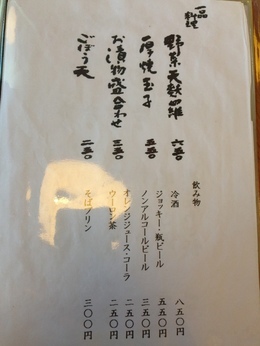 一品料理
野菜天麩羅 六五〇
厚焼玉子 五五〇
お漬物盛合わせ 三五〇
ごぼう天 二五〇
飲み物
冷酒 八五〇円
ジョッキー・瓶ビール 五五〇円
ノンアルコールビール 三五〇円
オレンジジュース・コーラ 二五〇円
ウーロン茶 二五〇円
そばプリン 三〇〇円